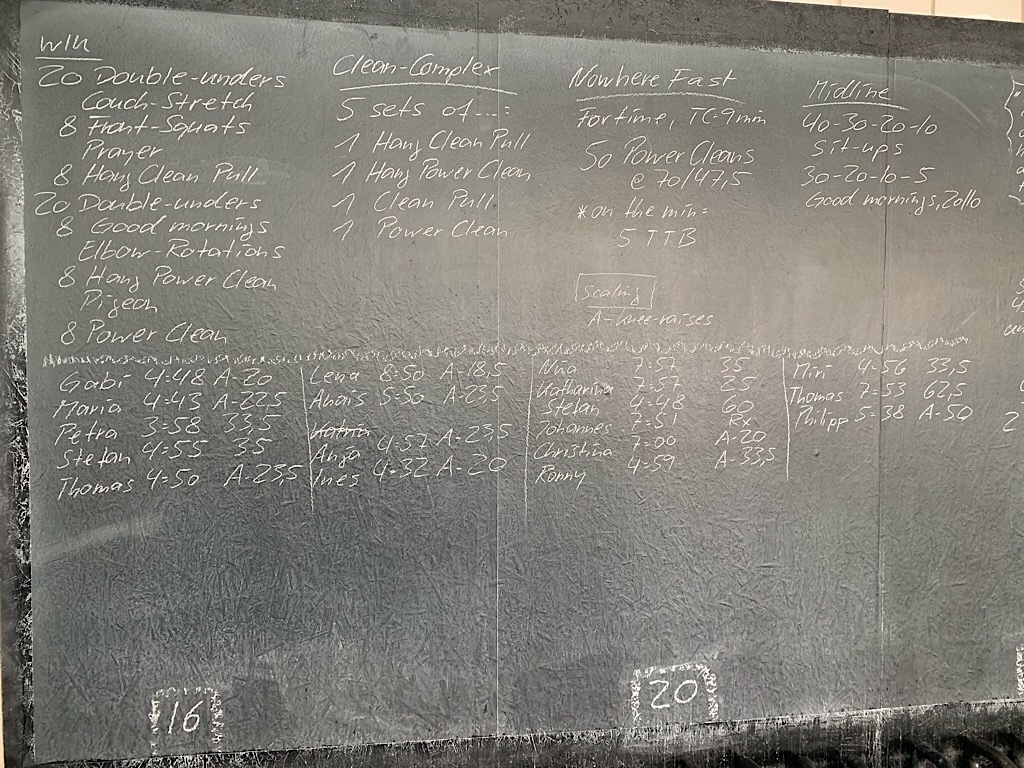 W/U
20 Double-unders
Couch-Stretch
8 Front-Squats
Prayer
8 Hang Clean Pull
20 Double-unders
8 Good mornings
Elbow-Rotations
8 Hang Power Clean
Pigeon
8 Power Clean
Clean-Complex
5 sets of...:
1 Hang Clean Pull
1 Hang Power Clean
1 Clean Pull
1 Power Clean
Nowhere Fast
For time, TC 9min
50 Power Cleans
@ 70/47,5
*on the min:
5 TTB
Scaling
A-knee-raises
Midline
40-30-20-10
Sit-ups
30-20-10-5
Good mornings, 20/10
Gabi 4:48 A-20
Maria 4:43 A-22,5
Petra 3:58 33,5
Stefan 4:55 35
Thomas 4:50 A-23,5
Lena 8:50 A-18,5
Anais 5:50 A-23,5
Anja 4:57 A-23,5
Ines 4:32 A-20
Nina 7:57 35
Katharina 7:57 25
Stefan 4:48 60
Johannes 7:51 Rx
Christina 7:00 A-20
Ronny 4:59 A-33,5
Miri 4:56 33,5
Thomas 7:53 62,5
Philipp 5:38 A-50
2
16
20